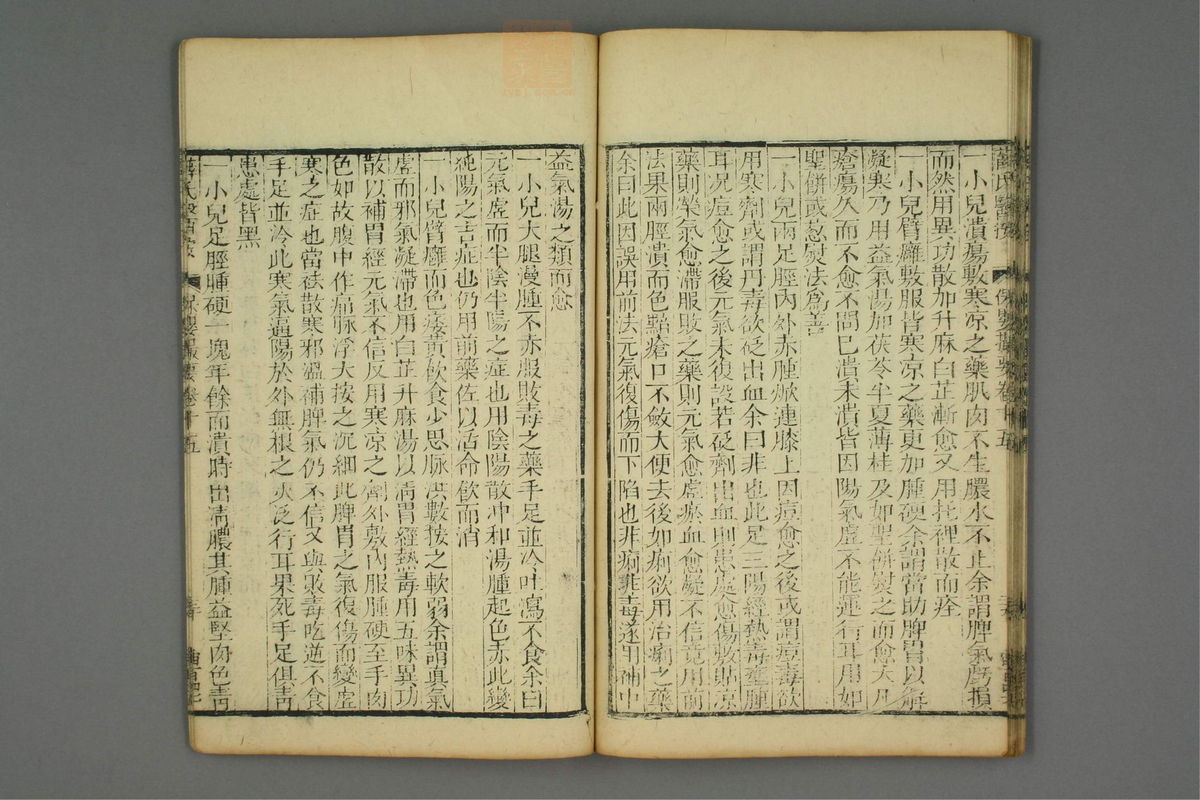 薛氏醫按 保嬰撮要卷十五
一小兒潰瘍敷寒凉之藥肌肉不生膿水不止余謂脾氣虛損
而然用異功散加升麻白芷漸愈又用托裡散而痊
一小兒臂癰敷服皆寒凉之藥更加腫硬余謂當助脾胃以解
凝寒乃用益氣湯加茯苓半夏薄桂及如聖餅熨之而愈大凡
瘡瘍久而不愈不問已潰未潰皆因陽氣虛不能運行耳用如
聖餅或葱熨法爲善
一小兒兩足脛內外赤腫焮連膝上因痘愈之後或謂痘毒欲
用寒劑或謂丹毒欲砭出血余曰非也此足三陽經熱毒壅腫
耳况痘愈之後元氣未復設若砭劑出血則患處愈傷敷貼凉
藥則榮氣愈滯服敗之藥則元氣愈虛瘀血愈凝不信竟用前
法果兩脛潰而色黯瘡口不斂大便去後如痢欲用治痢之藥
余曰此因誤用前法元氣復傷而下陷也非痢非毒遂用補中
益氣湯之類而愈
一小兒大腿漫腫不赤服敗毒之藥手足並冷吐瀉不食余曰
元氣虛而半陰半陽之症也用陰陽散冲和湯腫起色赤此變
純陽之吉症也仍用前藥佐以活命飲而消
一小兒臂癰而色痿黃飲食少思脉洪數按之軟弱余謂眞氣
虛而邪氣凝滯也用白芷升麻湯以淸胃經熱毒用五味異功
散以補胃經元氣不信反用寒凉之劑外敷內服腫硬至手肉
色如故腹中作痛脉浮大按之沉細此脾胃之氣復傷而變虛
寒之症也當祛散寒邪溫補脾氣仍不信又與敗毒吃逆不食
手足並冷此寒氣逼陽於外無根之火泛行耳果死手足俱靑
患處皆黑
一小兒足脛腫硬一塊年餘而潰時出淸膿其腫益堅肉色靑
薛氏醫按 保嬰撮要卷十五